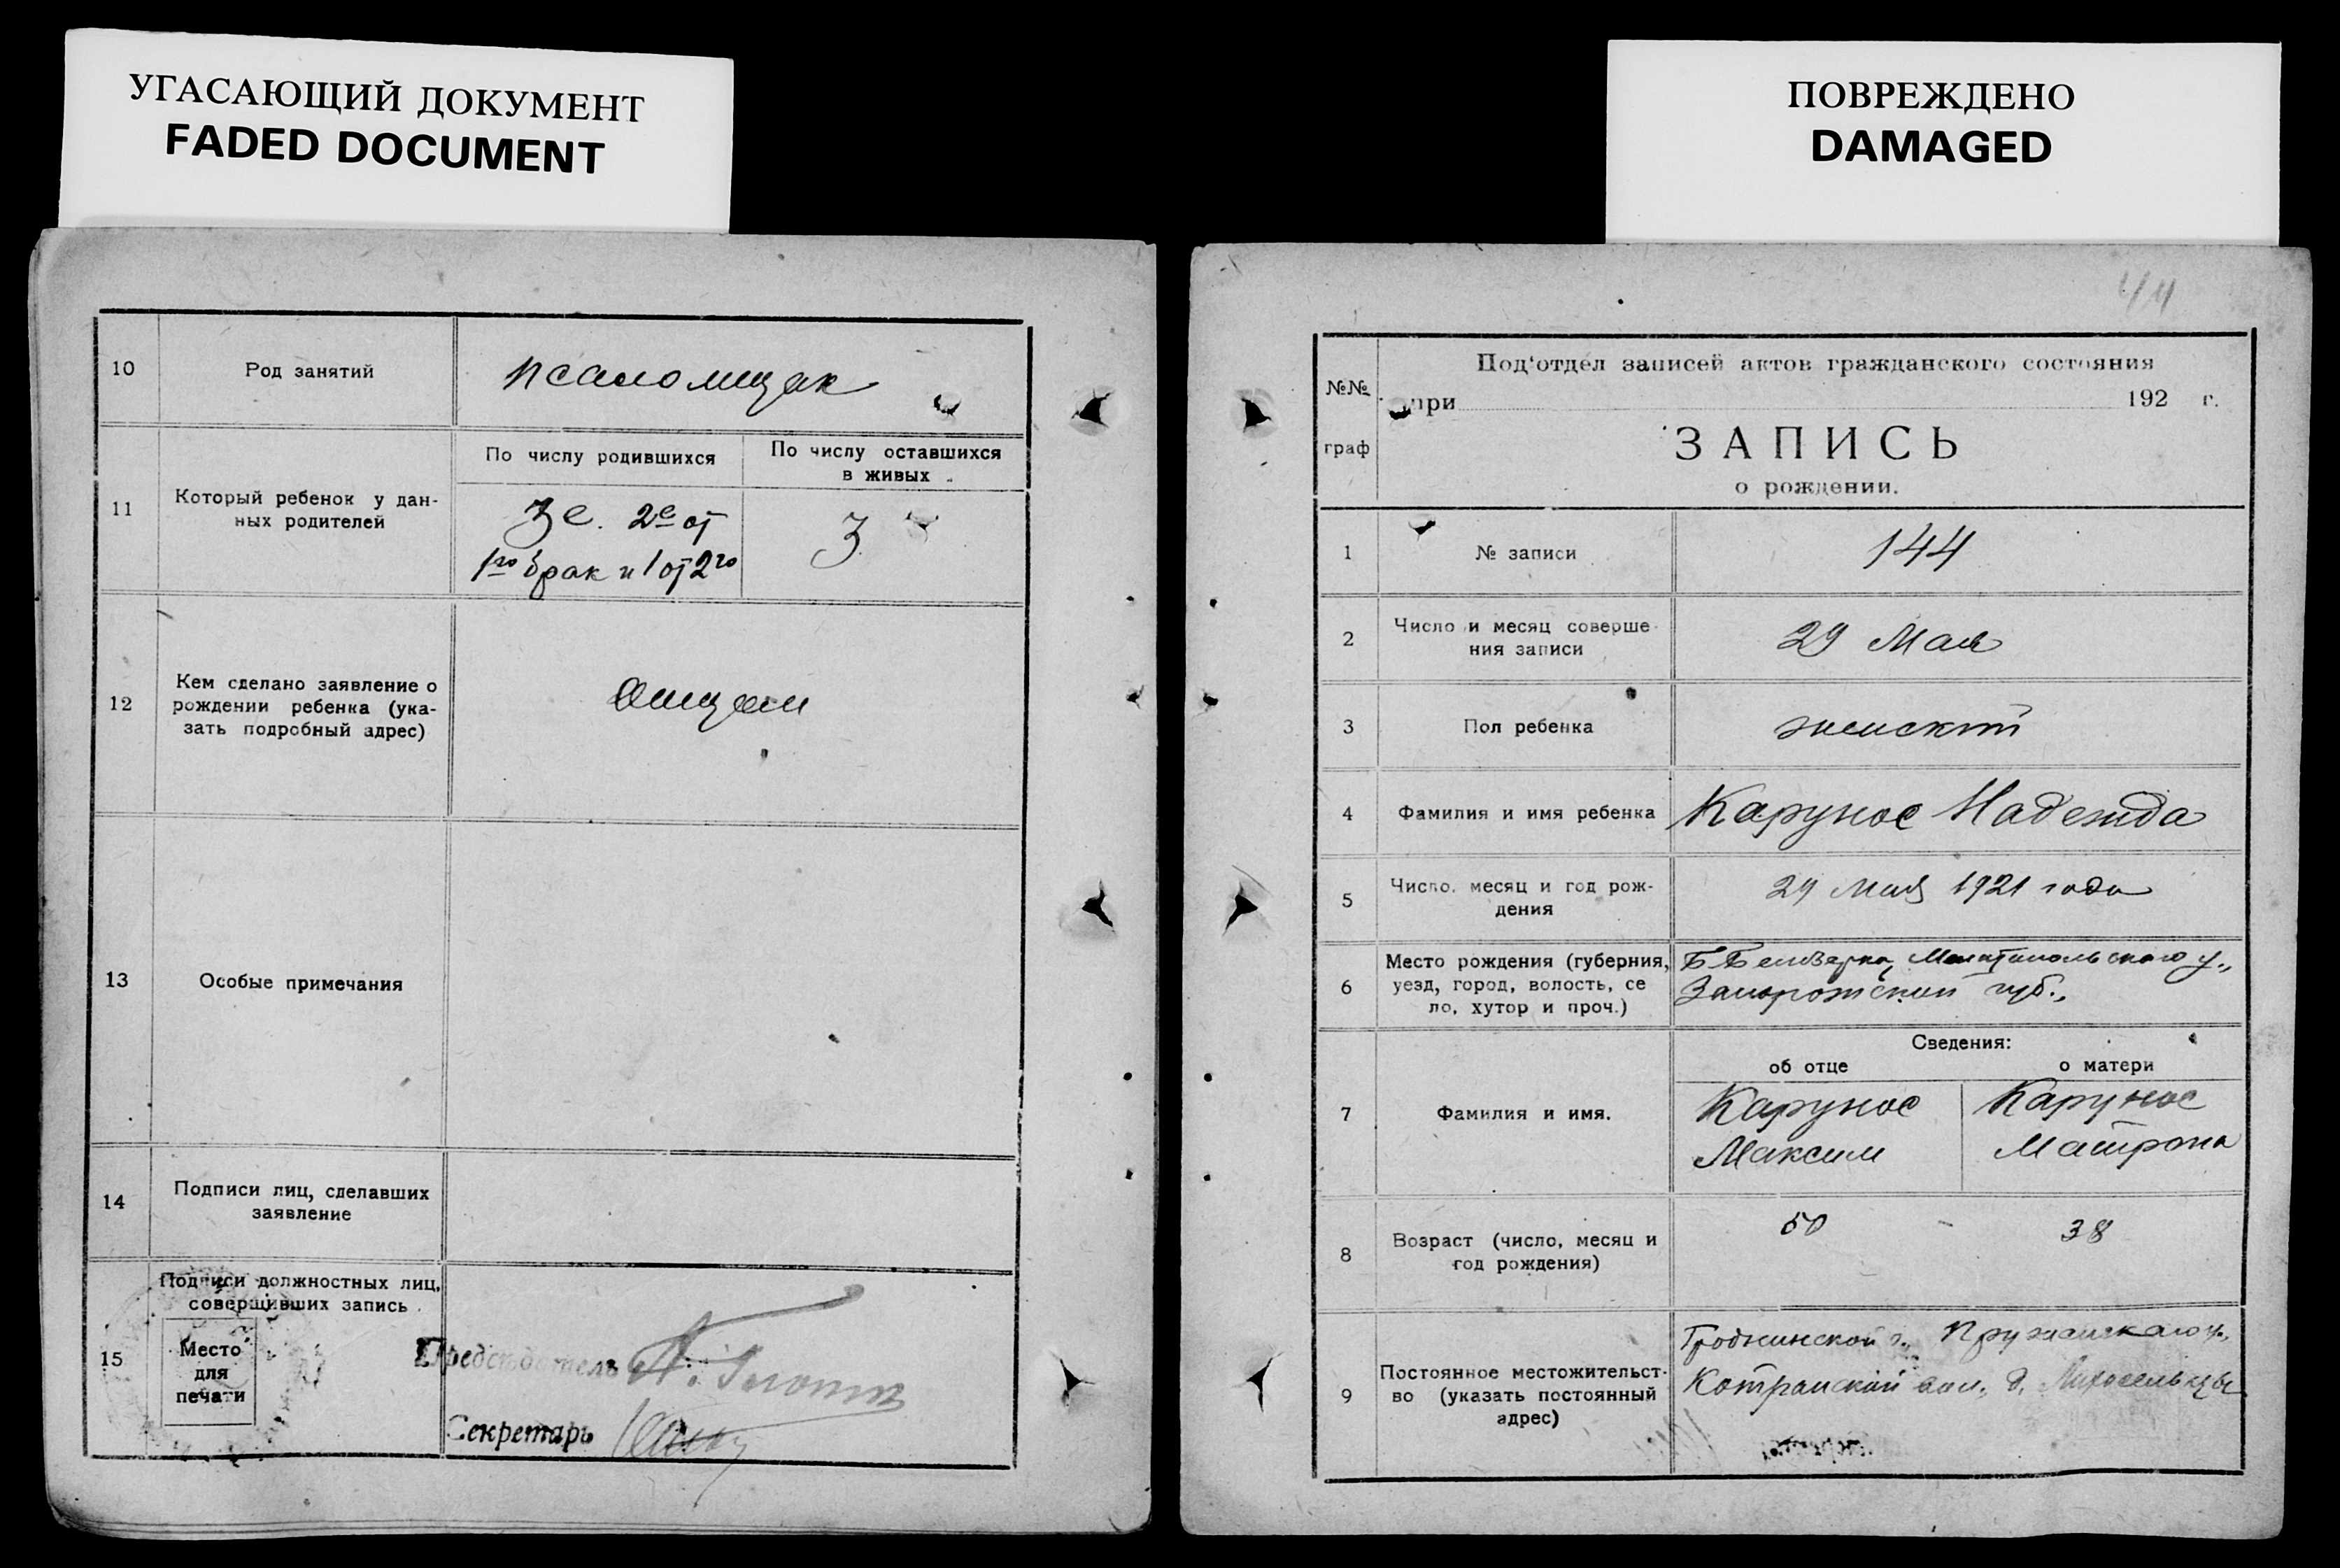 УГАСАЮЩИЙ ДОКУМЕНТ
FADED DOCUMENT
10 Род занятий псаломщик
11 Который ребенок у дан-
ных родителей
По числу родившихся
По числу оставшихся
в живых
3е. 2е от
1го брак и 1 от 2го
3
12 Кем сделано заявление о
рождении ребенка (ука-
зать подробный адрес)
Отцом
13 Особые примечания
14 Подписи лиц, сделавших
заявление
15 Подписи должностных лиц,
совершивших запись
Место
для
печати
Председатель
Секретарь
ПОВРЕЖДЕНО
DAMAGED
44
№№
граф
Под'отдел записей актов гражданского состояния
при 192 г.
ЗАПИСЬ
о рождении.
1 № записи 144
2 Число и месяц соверше-
ния записи
29 Мая
3 Пол ребенка женский
4 Фамилия и имя ребенка Карунос Надежда
5 Число, месяц и год рож-
дения
29 Мая 1921 года
6 Место рождения (губерния,
уезд, город, волость, се
ло, хутор и проч.)
Б Белозерка, Мелитопольского у.,
Запорожской губ.,
Сведения:
об отце о матери
7 Фамилия и имя.
Карунос Карунос
Максим Матрона
8 Возраст (число, месяц и
год рождения)
50 38
9 Постоянное местожительст-
во (указать постоянный
адрес)
Гродненской г., Пружанского у.,
Котранской вол. д.